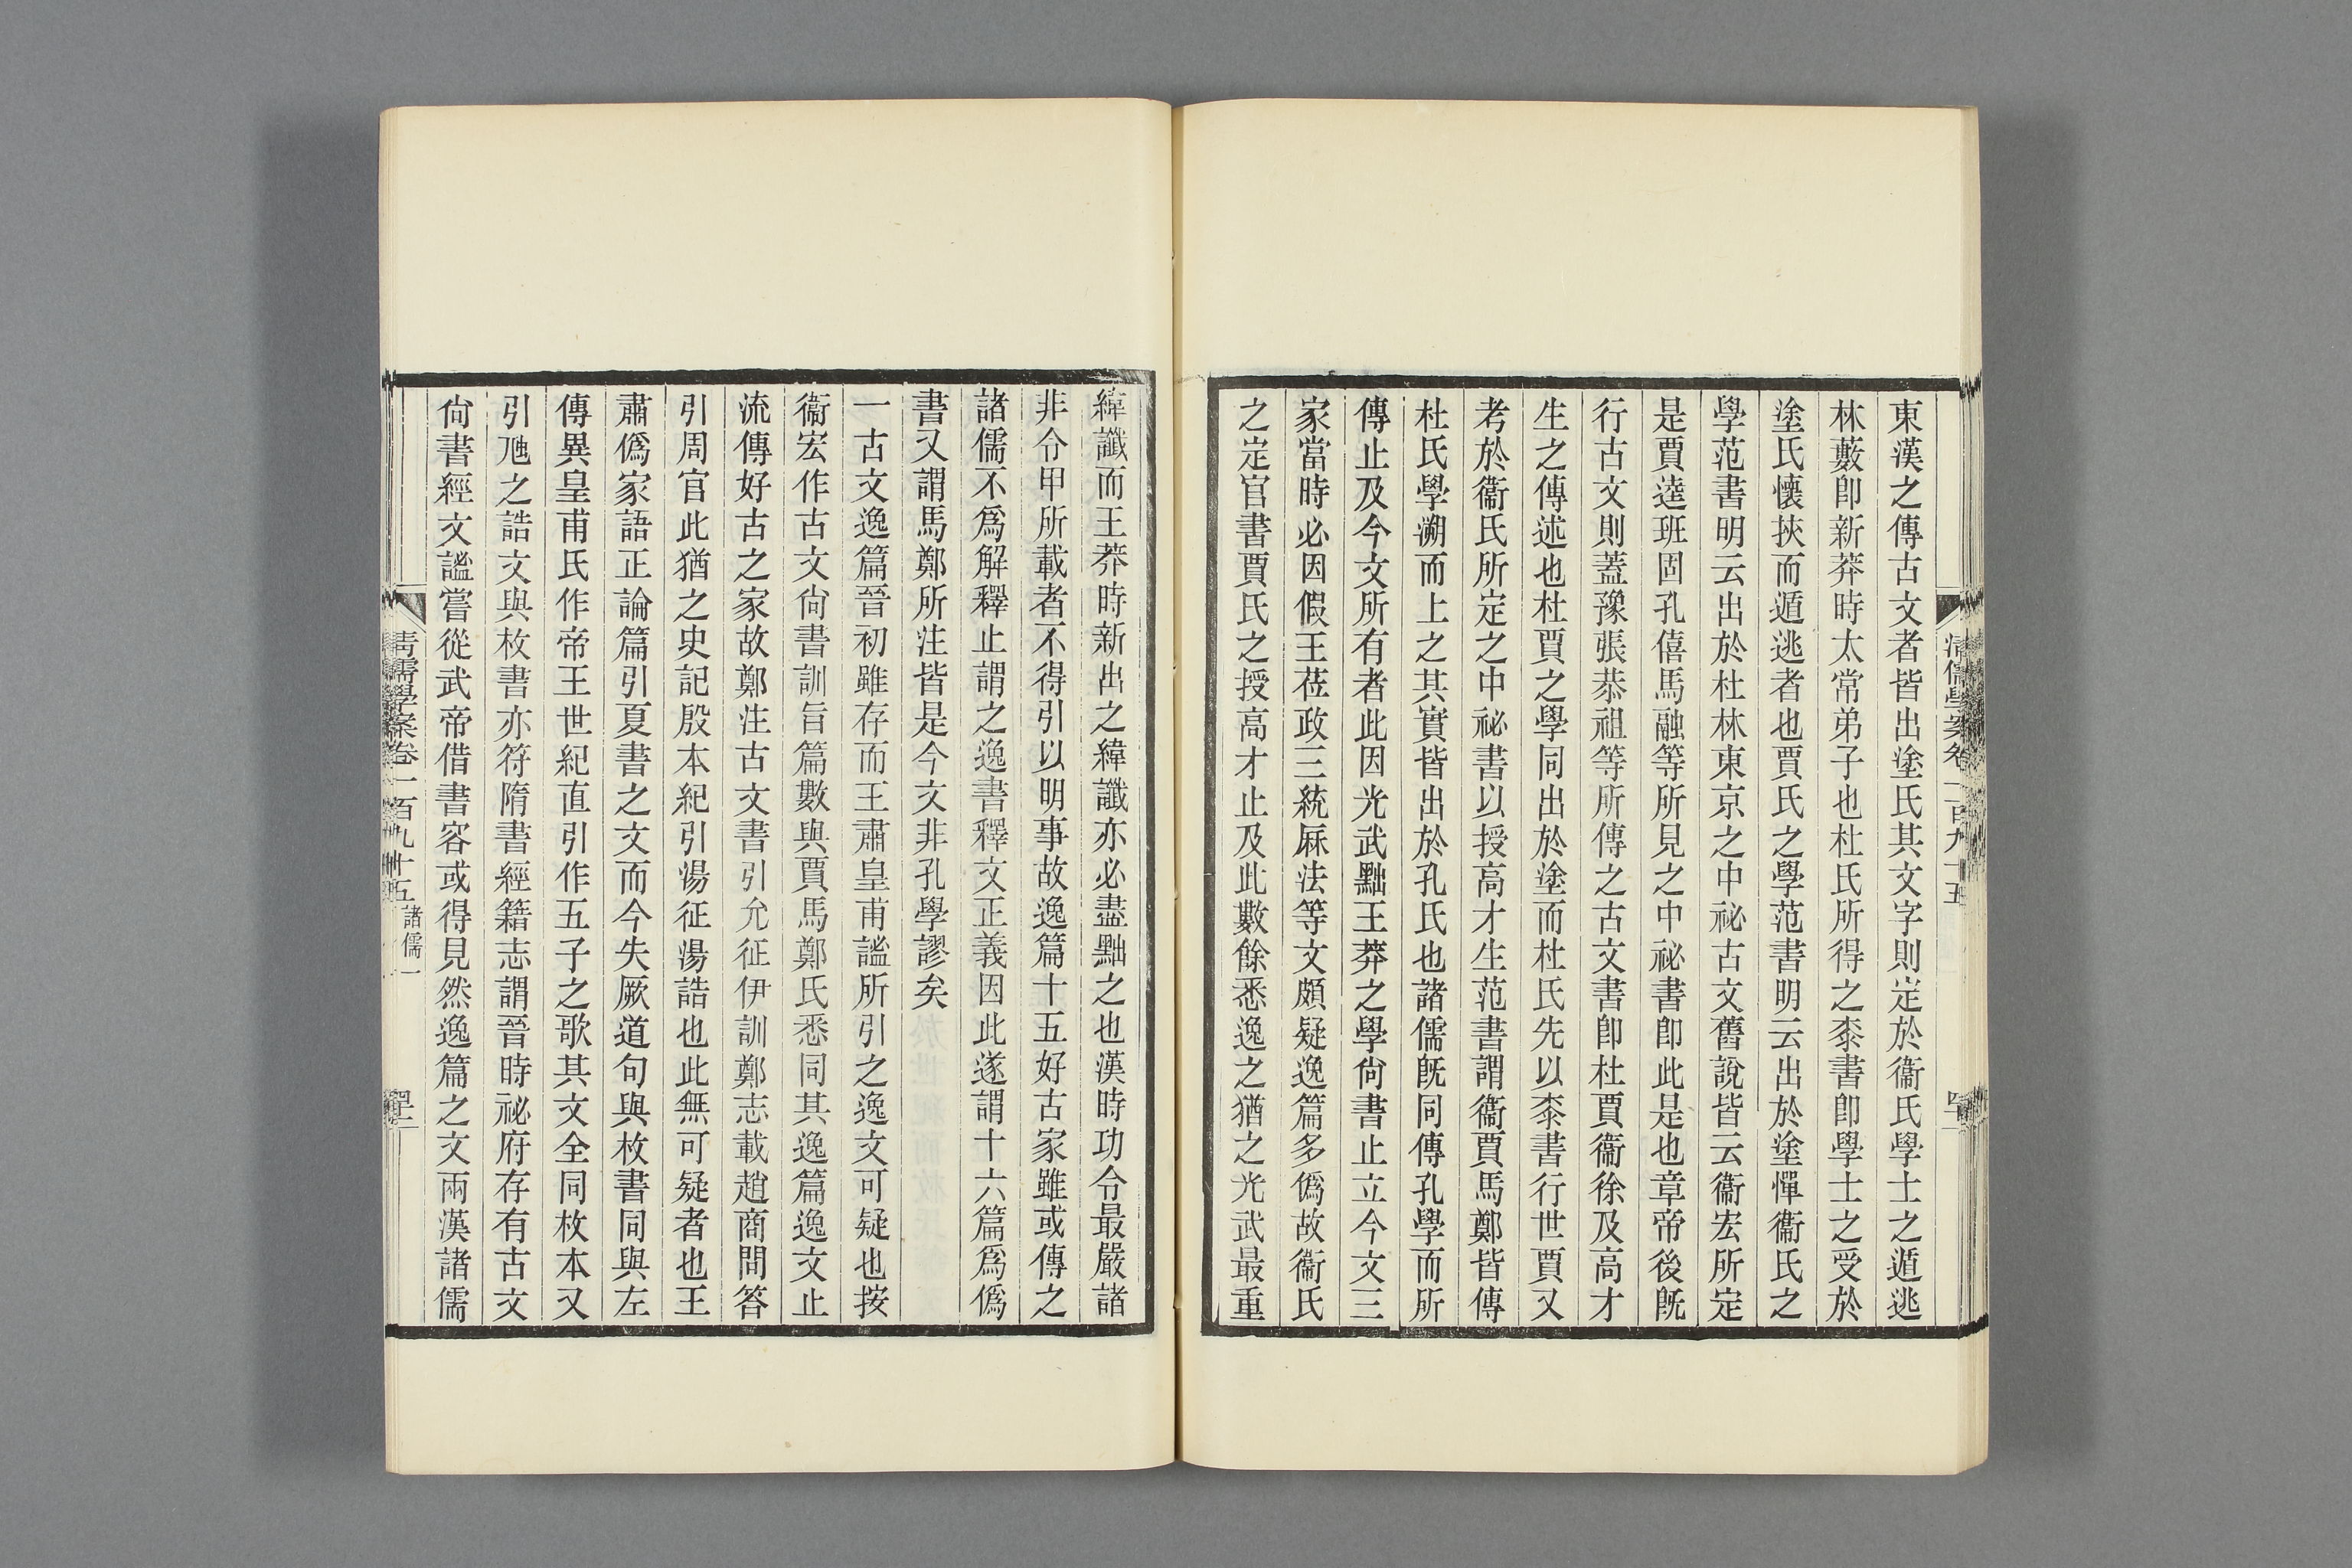 東漢之傳古文者皆出塗氏其文字則定於衞氏學士之遁逃
林藪卽新莽時太常弟子也杜氏所得之桼書卽學士之受於
塗氏懷挾而遁逃者也賈氏之學范書明云出於塗惲衞氏之
學范書明云出於杜林東京之中祕古文舊說皆云衞宏所定
是賈逵班固孔僖馬融等所見之中祕書卽此是也章帝後旣
行古文則蓋豫張恭祖等所傳之古文書卽杜賈衞徐及高才
生之傳述也杜賈之學同出於塗而杜氏先以桼書行世賈又
考於衞氏所定之中祕書以授高才生范書謂衞賈馬鄭皆傳
杜氏學溯而上之其實皆出於孔氏也諸儒旣同傳孔學而所
傳止及今文所有者此因光武黜王莽之學尙書止立今文三
家當時必因假王莅政三統厤法等文頗疑逸篇多僞故衞氏
之定官書賈氏之授高才止及此數餘悉逸之猶之光武最重
緯讖而王莽時新出之緯讖亦必盡黜之也漢時功令最嚴諸
非令甲所載者不得引以明事故逸篇十五好古家雖或傳之
諸儒不爲解釋止謂之逸書釋文正義因此遂謂十六篇爲僞
書又謂馬鄭所注皆是今文非孔學謬矣
一古文逸篇晉初雖存而王肅皇甫謐所引之逸文可疑也按
衞宏作古文尙書訓旨篇數與賈馬鄭氏悉同其逸篇逸文止
流傳好古之家故鄭注古文書引允征伊訓鄭志載趙商問答
引周官此猶之史記殷本紀引湯征湯誥也此無可疑者也王
肅僞家語正論篇引夏書之文而今失厥道句與枚書同與左
傳異皇甫氏作帝王世紀直引作五子之歌其文全同枚本又
引虺之誥文與枚書亦符隋書經籍志謂晉時祕府存有古文
尙書經文謐嘗從武帝借書容或得見然逸篇之文兩漢諸儒
清儒學案卷一百九十五 諸儒一